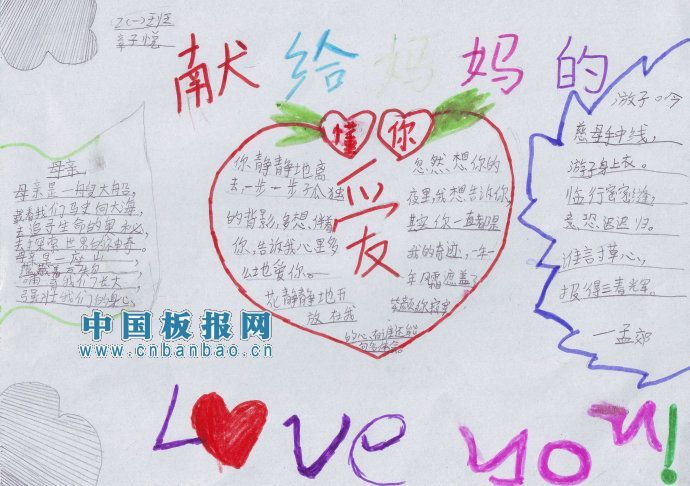 2(一)班
章子悦
献给妈妈的
爱
懂你
母亲
母亲是一艘大船,
载着我们驶向大海,
去追寻生命的奥秘,
去探索世界的神奇。
母亲是一座山,
哺育我们长大,
强壮我们的身心。
你静静地离
去一步一步孤独
的背影,多想伴着
你,告诉我心里多
么地爱你。
花静静地开
放在我
忽然想你的
夜里,我想告诉你,
其实你一直都是
我的奇迹,一年一
年风霜遮盖了
笑颜,你寂寞
的心有谁还能
游子吟
慈母手中线,
游子身上衣。
临行密密缝,
意恐迟迟归。
谁言寸草心,
报得三春光辉。
—孟郊
中国板报网
www.cnbanbao.cn
Love you!